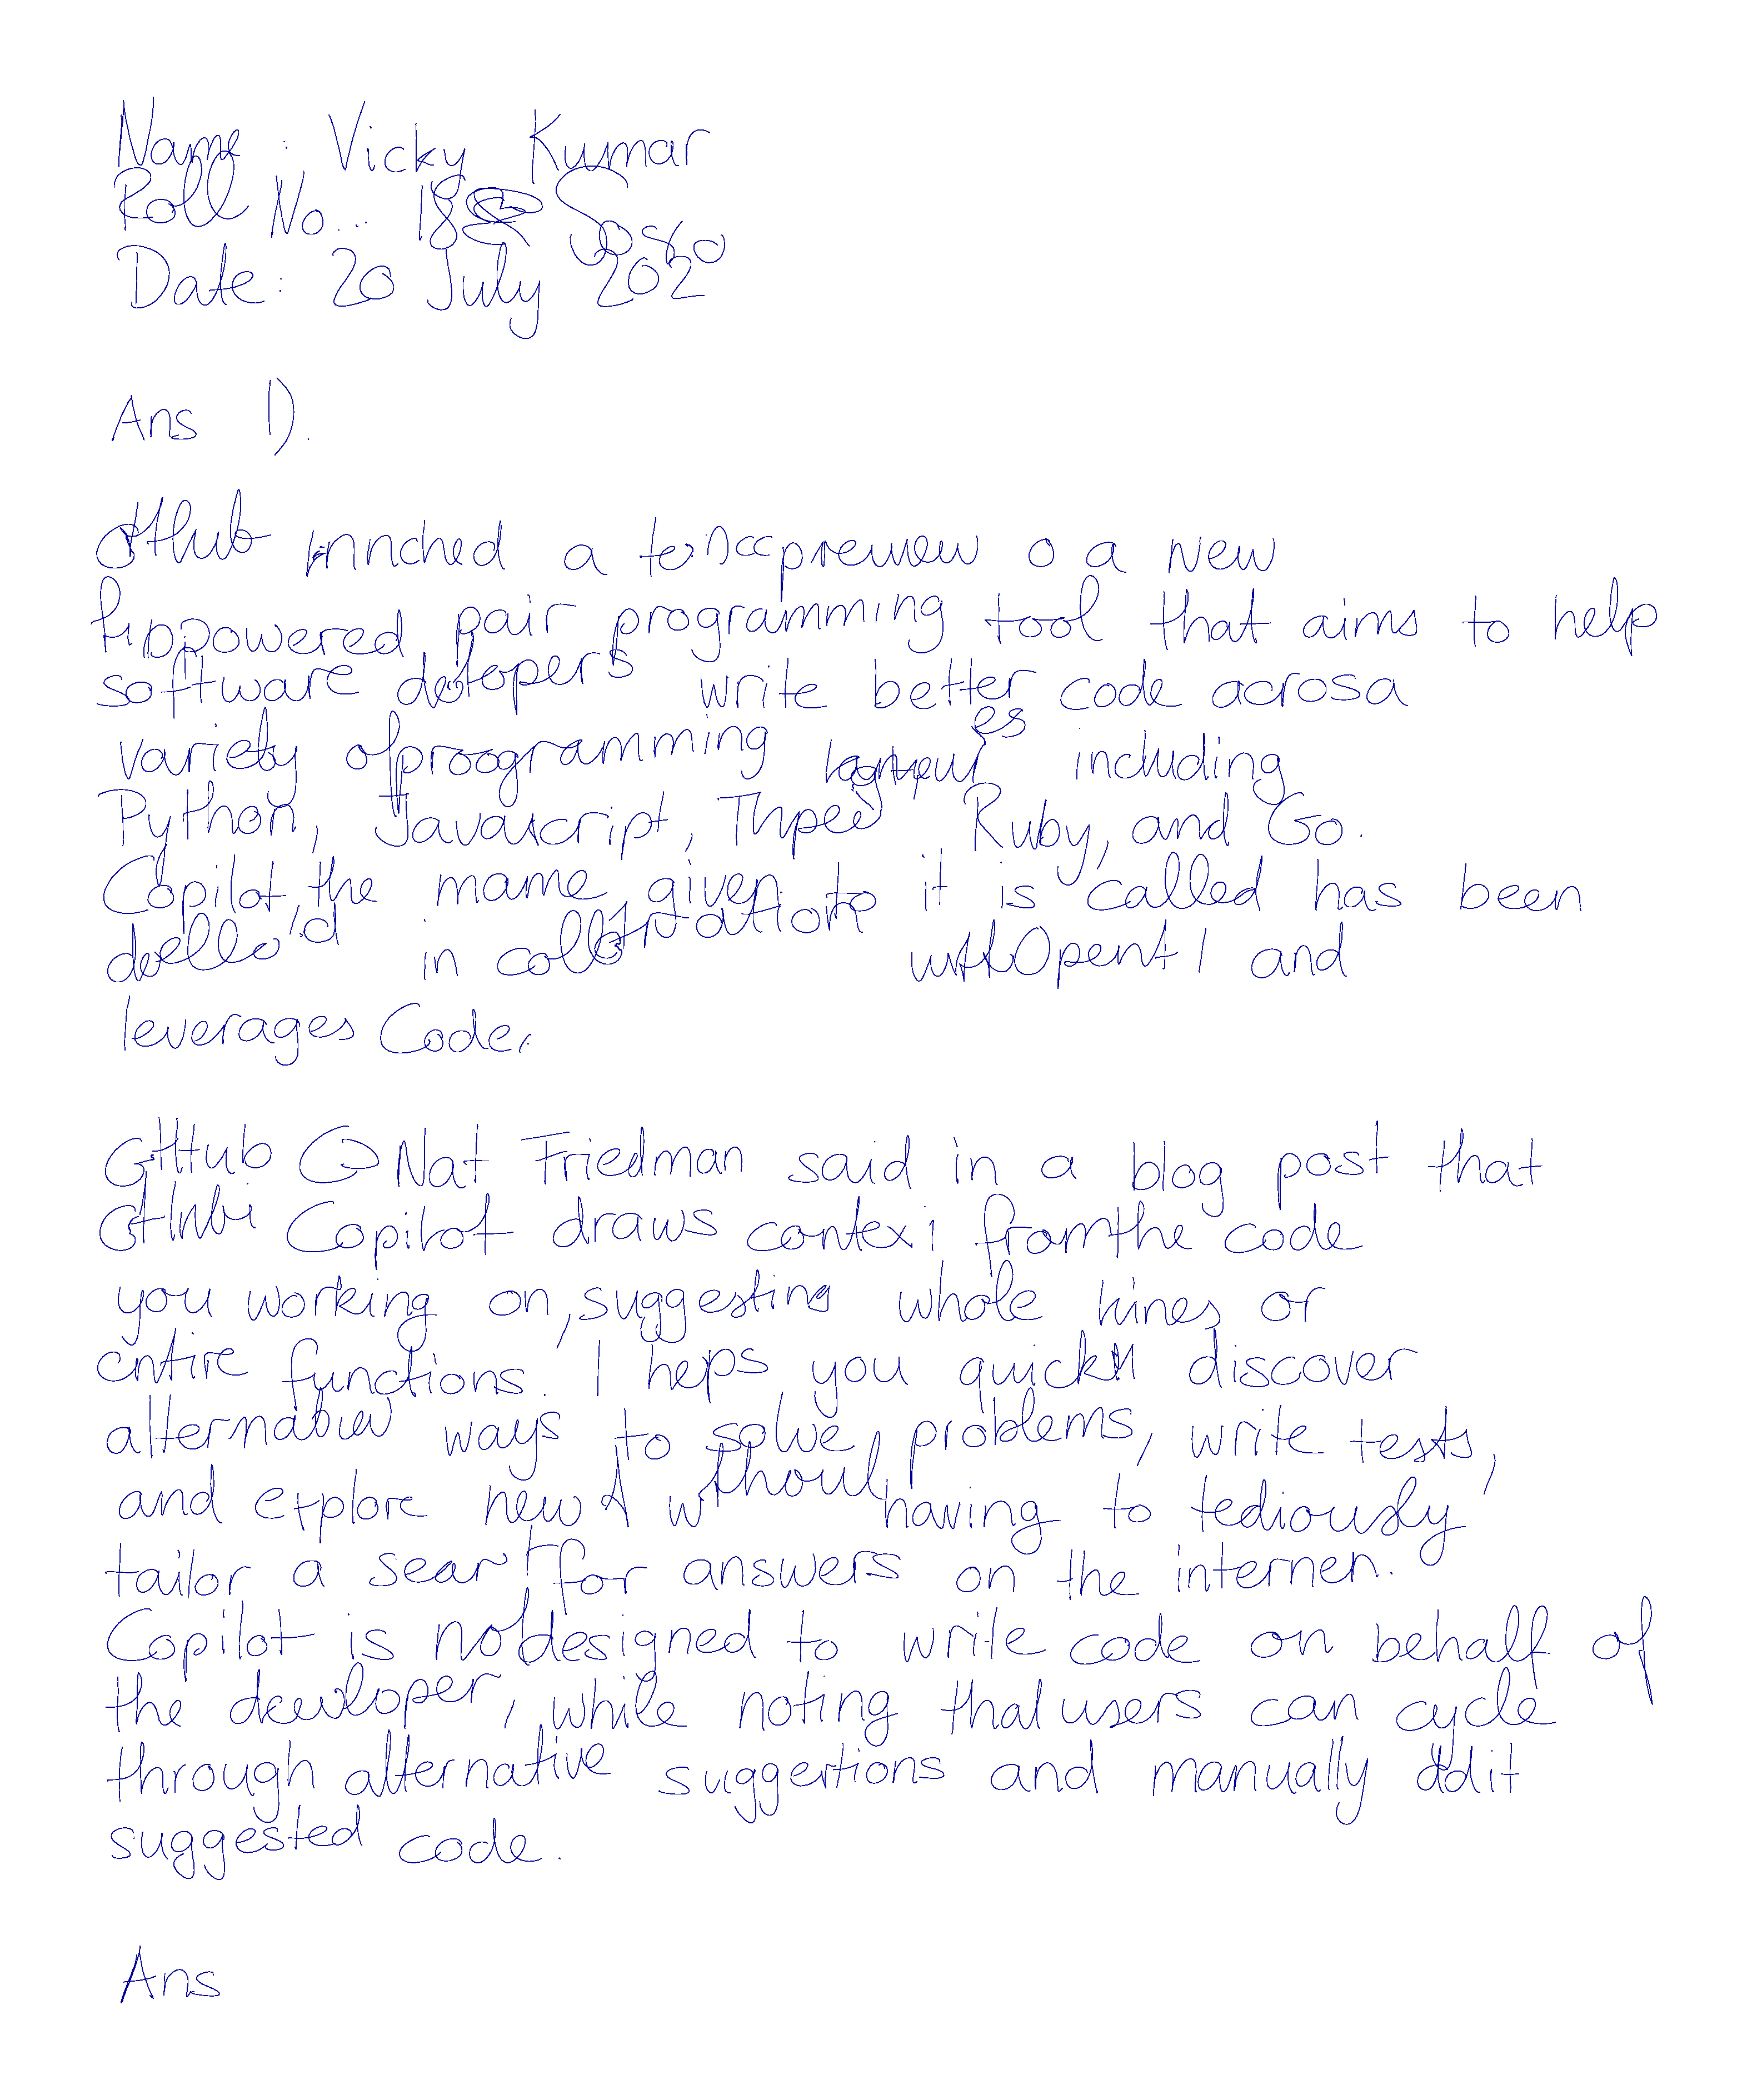 Name : Vicky Kumar
Roll No.. 18
Date: 20 July 202
Ans 1).
a o a New
powered pair programming tool that aims to help
software write better code acrosa
variety of proogramming including
Python, Javascript, Ruby, and Go.
Copilot, the mame given to it is called has been
in and
leverages Code.
GitHub Nat Friedman said in a blog post that
Copilot draws context from the code
you working on, suggesting whole hines or
entire functions. I heps you quick discover
ways to solve problems, write tests,
and explore new without having to tediously
tailor a sear for answers on the internen.
Copilot is not designed to write code on behalf of
the developer, while noting that users can cycle
through alternative suggestions and manually
suggested code.
Ans